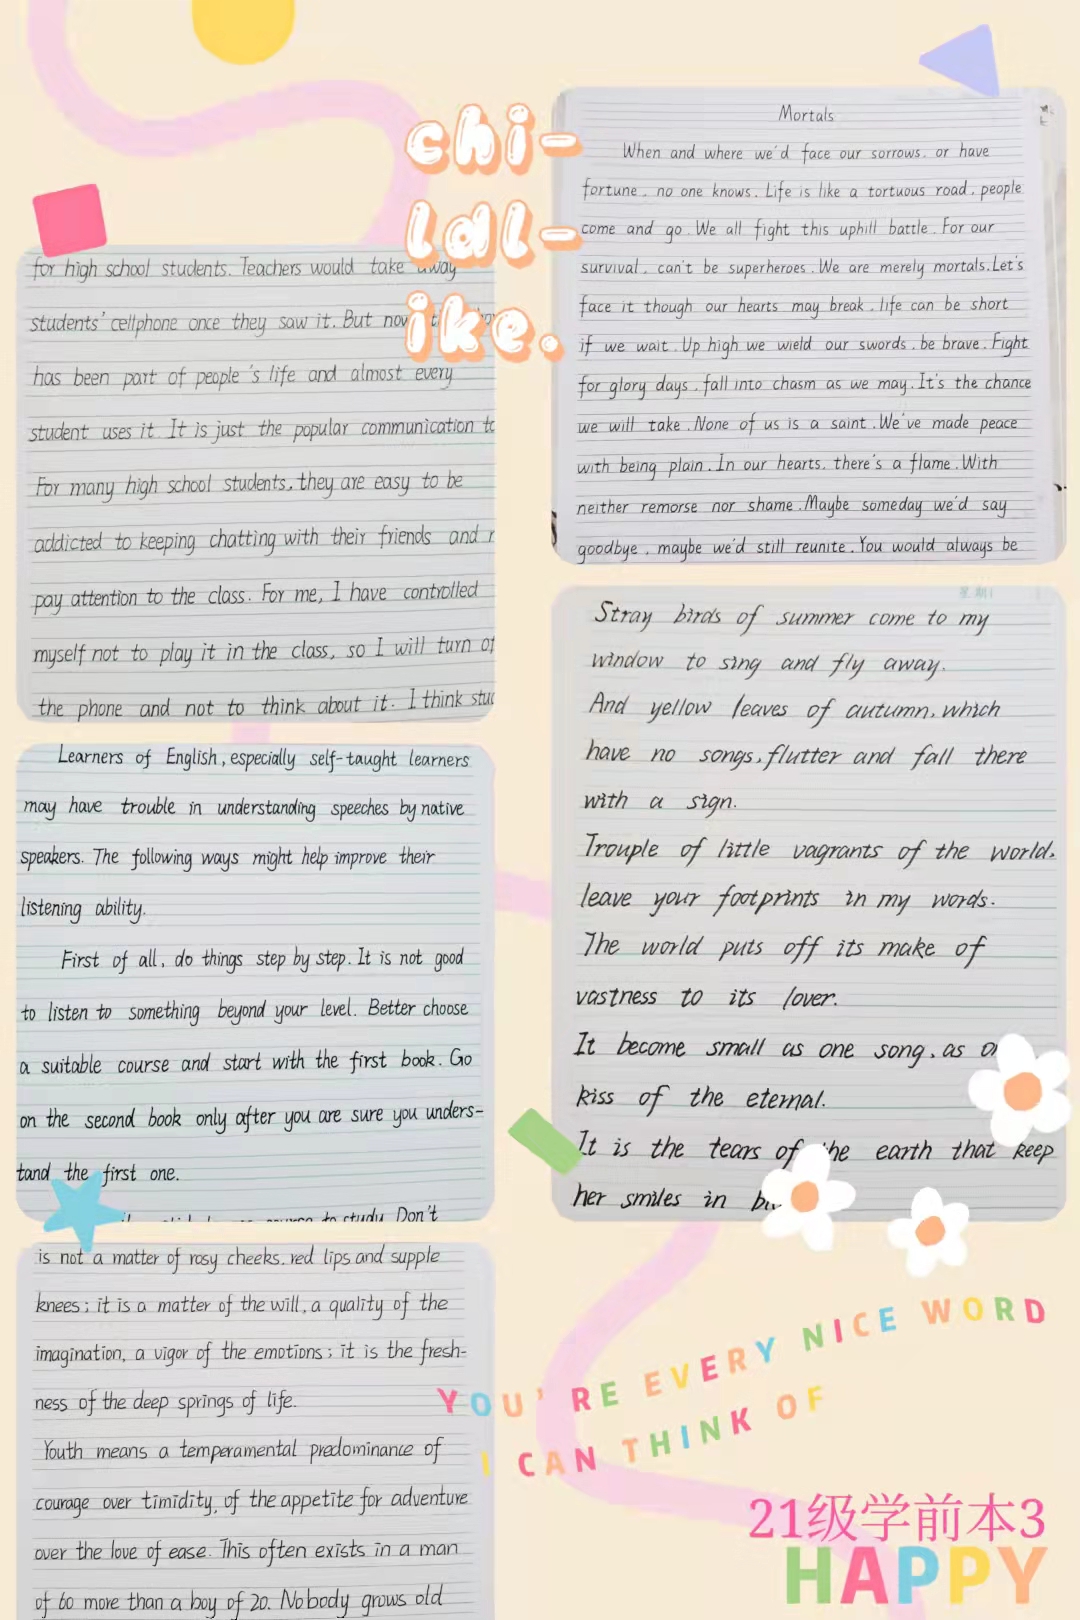 chi-
ldl-
ike.
Mortals
When and where we'd face our sorrows. or have
fortune. no one knows. Life is like a tortuous road. people
come and go. We all fight this uphill battle. For our
survival. can't be superheroes. We are merely mortals. Let's
face it though our hearts may break. life can be short
if we wait. Up high we wield our swords. be brave. Fight
for glory days. fall into chasm as we may. It's the chance
we will take. None of us is a saint. We've made peace
with being plain. In our hearts. there's a flame. With
neither remorse nor shame. Maybe someday we'd say
goodbye. maybe we'd still reunite. You would always be
for high school students. Teachers would take away
students' cellphone once they saw it. But now
has been part of people's life and almost every
student uses it. It is just the popular communication to
For many high school students, they are easy to be
addicted to keeping chatting with their friends and
pay attention to the class. For me, I have controlled
myself not to play it in the class, so I will turn of
the phone and not to think about it. I think stud
星期
Stray birds of summer come to my
window to sing and fly away.
And yellow leaves of autumn, which
have no songs, flutter and fall there
with a sign.
Trouple of little vagrants of the world,
leave your footprints in my words.
The world puts off its make of
vastness to its lover.
It become small as one song, as
kiss of the eternal.
It is the tears of the earth that keep
her smiles in
Learners of English, especially self-taught learners
may have trouble in understanding speeches by native
speakers. The following ways might help improve their
listening ability.
First of all, do things step by step. It is not good
to listen to something beyond your level. Better choose
a suitable course and start with the first book. Go
on the second book only after you are sure you unders-
tand the first one.
to study. Don't
is not a matter of rosy cheeks, red lips and supple
knees; it is a matter of the will, a quality of the
imagination, a vigor of the emotions; it is the fresh-
ness of the deep springs of life.
Youth means a temperamental predominance of
courage over timidity, of the appetite for adventure
over the love of ease. This often exists in a man
of 60 more than a boy of 20. Nobody grows old
YOU'RE EVERY NICE WORD
I CAN THINK OF
21级学前本3
HAPPY